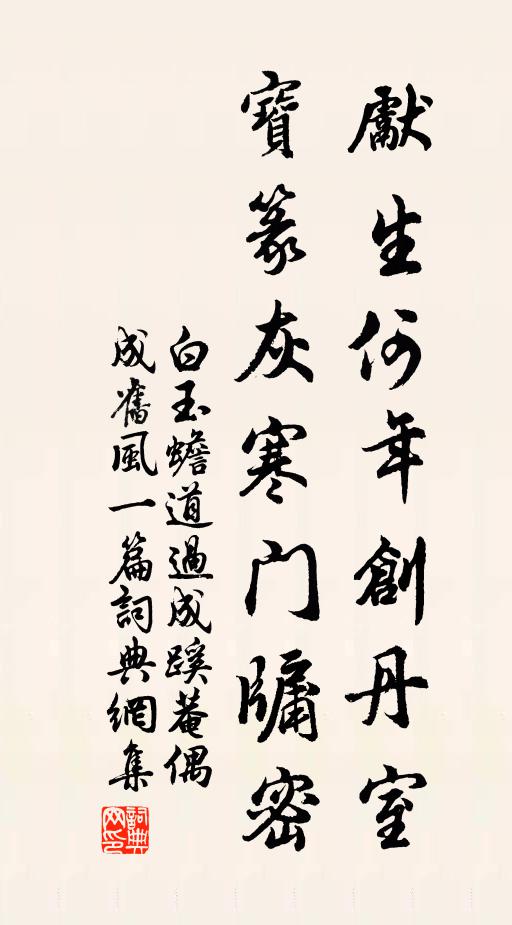 獻生何年創丹室
寶篆灰寒門牖密
白玉蟾道過成蹊菴偶
成舊風一篇詞典網集
詞典网印